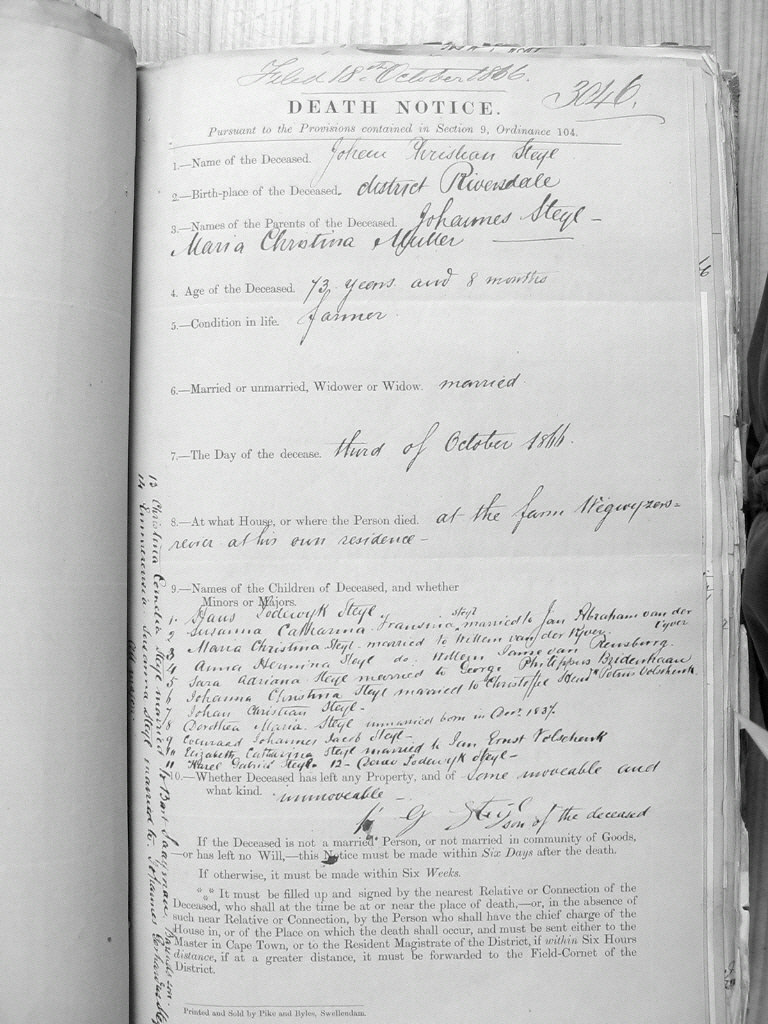 Filed 18th October 1866.
3046.
DEATH NOTICE.
Pursuant to the Provisions contained in Section 9, Ordinance 104.
1.—Name of the Deceased. Johan Christian Steyl
2.—Birth-place of the Deceased. district Riversdale
3.—Names of the Parents of the Deceased. Johannes Steyl –
Maria Christina Muller
4. Age of the Deceased. 73 years and 8 months
5.—Condition in life. farmer
6.—Married or unmarried, Widower or Widow. married
7.—The Day of the decease. third of October 1866.
8.—At what House, or where the Person died. at the farm Wegwyzers=
revier at his own residence –
9.—Names of the Children of Deceased, and whether
Minors or Majors.
1. Hans Lodewyk Steyl
2 Susanna Catharina Fransina Steyl married to Jan Abraham van der Vyver
3 Maria Christina Steyl married to Willem van der Vyver
4 Anna Hermina Steyl do. Willem Janse van Rensburg
5 Sara Adriana Steyl married to George Philippus Bridenhaan
6 Johanna Christina Steyl married to Christoffel Petrus Volschenk
7 Johan Christian Steyl –
8 Dorothea Maria Steyl unmarried born in Decr. 1837.
9 Evenraad Johannes Jacob Steyl –
10 Elizabeth Catharina Steyl married to Jan Ernst Volschenk
11 Karel Steyl 12 – Lodewyk Steyl –
10.—Whether Deceased has left any Property, and of some moveable and
what kind. immoveable –
G Steyl
son of the deceased
If the Deceased is not a married Person, or not married in community of Goods,
—or has left no Will,—this Notice must be made within Six Days after the death.
If otherwise, it must be made within Six Weeks.
*** It must be filled up and signed by the nearest Relative or Connection of the
Deceased, who shall at the time be at or near the place of death,—or, in the absence of
such near Relative or Connection, by the Person who shall have the chief charge of the
House in, or of the Place on which the death shall occur, and must be sent either to the
Master in Cape Town, or to the Resident Magistrate of the District, if within Six Hours
distance, if at a greater distance, it must be forwarded to the Field-Cornet of the
District.
Printed and Sold by Pike and Byles, Swellendam.
13 Christina Cornelia Steyl married to Bart Saayman
14 Emmarensia Susanna Steyl married to Johannes Steyl